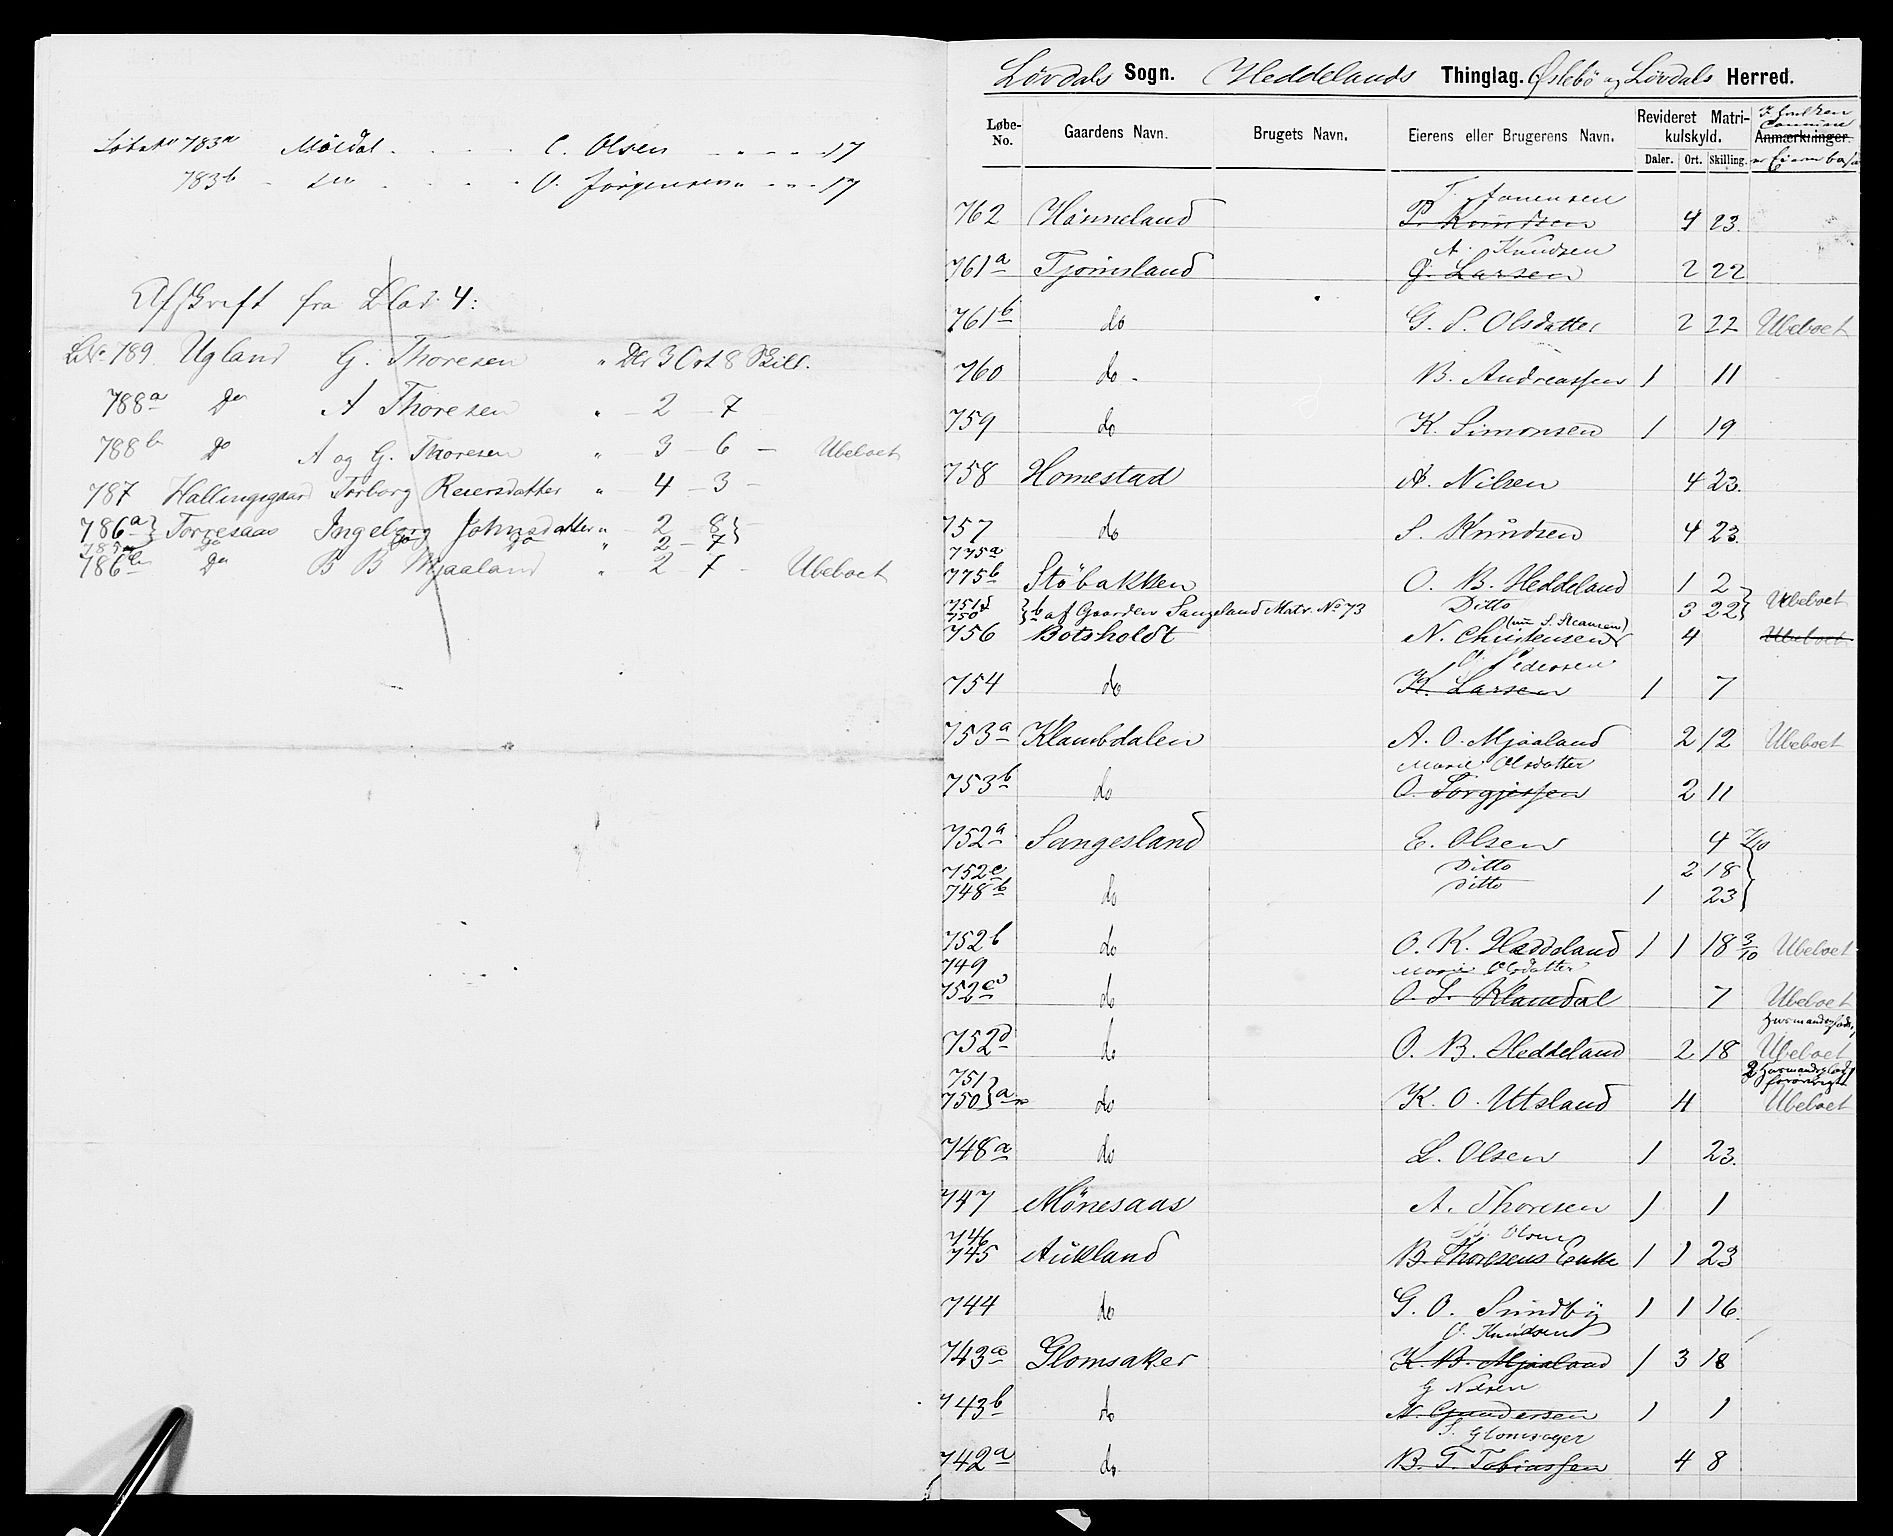 Løb. No 783a Møldal C. Olsen 17
783b do O. Jørgensen 17
Afskrift fra Blad 4:
L.No. 789 Ugland G. Thoresen " Dlr 3 Ort 8 Skill.
788a Do A Thoresen " 2 - 7
788b Do A og G. Thoresen " 3 - 6 - Ubeboet
787 Hallingsgaard Torborg Reiersdatter " 4 - 3 -
786a} Torresaas Ingeborg Johnsdatter " 2 - 8} -
785 Do do do " 2 - 7}
786b Do B B Mjaaland " 2 - 7 - Ubeboet
Løvdals Sogn. Heddelands Thinglag. Øslebö og Løvdals Herred.
Løbe-No. Gaardens Navn. Brugets Navn. Eierens eller Brugerens Navn. Revideret Matrikulskyld. Daler. Ort. Skilling. Anmærkninger.
T. Jonensen
762 Hönneland P. Knudsen 4 23.
A. Knudsen
761a Tjomsland G. Larsen 2 22
761b do G. S. Olsdatter 2 22 Ubeboet
760 do - B. Andreassen 1 11
759 do K. Simonsen 1 19
758 Homestad A. Nilsen 4 23.
757 do S. Knudsen 4 23.
775a
775b Stöbakken O. B. Heddeland 1 2
751}
750 } b af Gaarden Sangesland Matr. No 73 Ditto 3 22} Ubeboet
756 Botsholdt N. Christensen 4 Ubeboet
O. Pedersen
754 do K. Larsen 1 7
753a Klambdalen A. O. Mjaaland 2 12 Ubeboet
Marie Olsdatter
753b do O. Torgjessen 2 11
752a Sangesland E. Olsen 4 7/10
752c Ditto 2 18
748b do Ditto 1 23}
752b do O. K. Heddeland 1 1 18 3/10 Ubeboet
749 Marie Olsdatter
752e do O. T. Klamdal 7 Ubeboet
752d do O. B. Heddeland 2 18 Ubeboet
751
750} a do K. O. Utsland 4 Ubeboet
748a do L. Olsen 1 23.
747 Mönesaas A. Thoresen 1 1
746 Olsen
745 Aukland B. Thoresens Enke 1 1 23
744 do G. O. Sundby 1 1 16.
O. Knudsen
743a Glomsaker K. B. Mjaaland 1 3 18
G Nilsen
743b do N. Gundersen 1 1
S. Glomsager
742a do B. T. Tobiassen 4 8